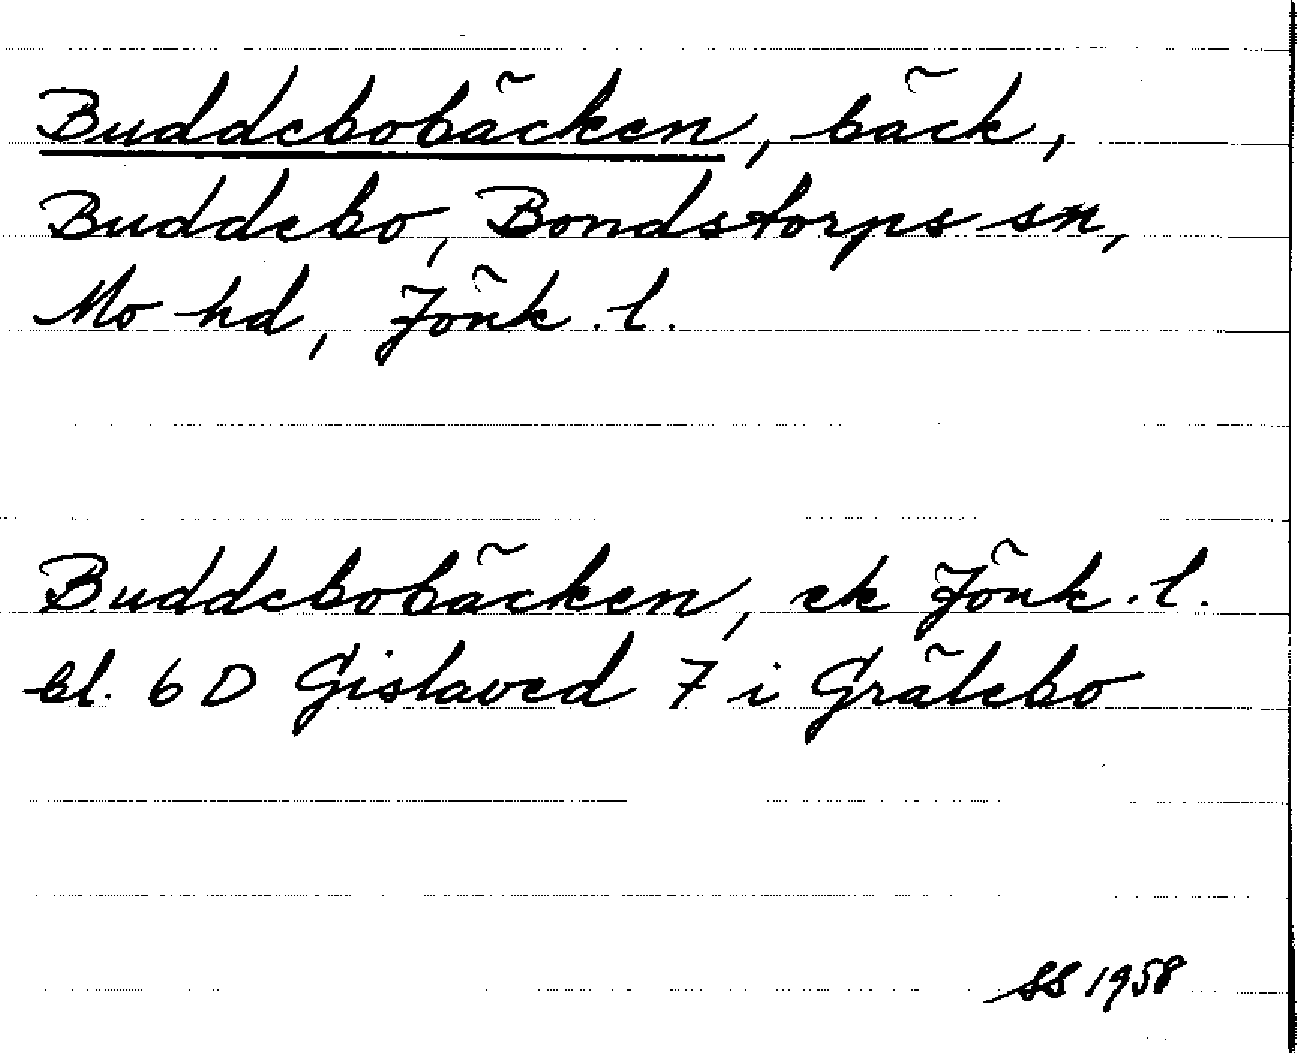 Buddebobäcken, bäck,
Buddebo, Bondstorps sn,
Mo hd, Jönk. l.
Buddebobäcken, ek Jönk. l.
bl. 6 D Gislaved 7 i Grälebo
SS 1958